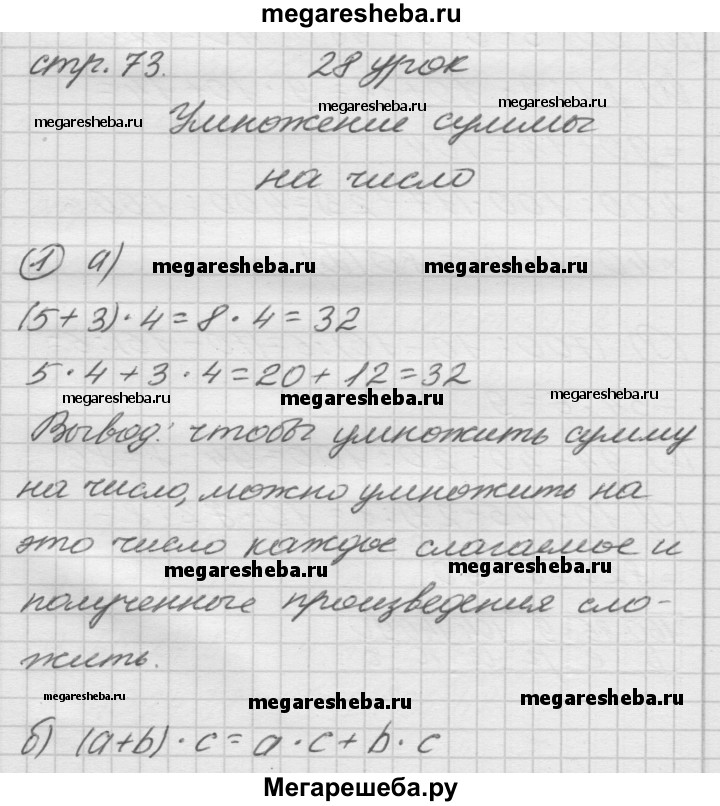 megaresheba.ru
стр. 73. 28 урок
megaresheba.ru megaresheba.ru megaresheba.ru
Умножение суммы
на число
1 а) megaresheba.ru megaresheba.ru
(5+3)·4=8·4=32
5·4+3·4=20+12=32
megaresheba.ru megaresheba.ru megaresheba.ru
Вывод: чтобы умножить сумму
на число, можно умножить на
это число каждое слагаемое и
megaresheba.ru megaresheba.ru
полученные произведения сло-
жить.
megaresheba.ru megaresheba.ru megaresheba.ru
б) (a+b)·c=a·c+b·c
Мегарешеба.ру